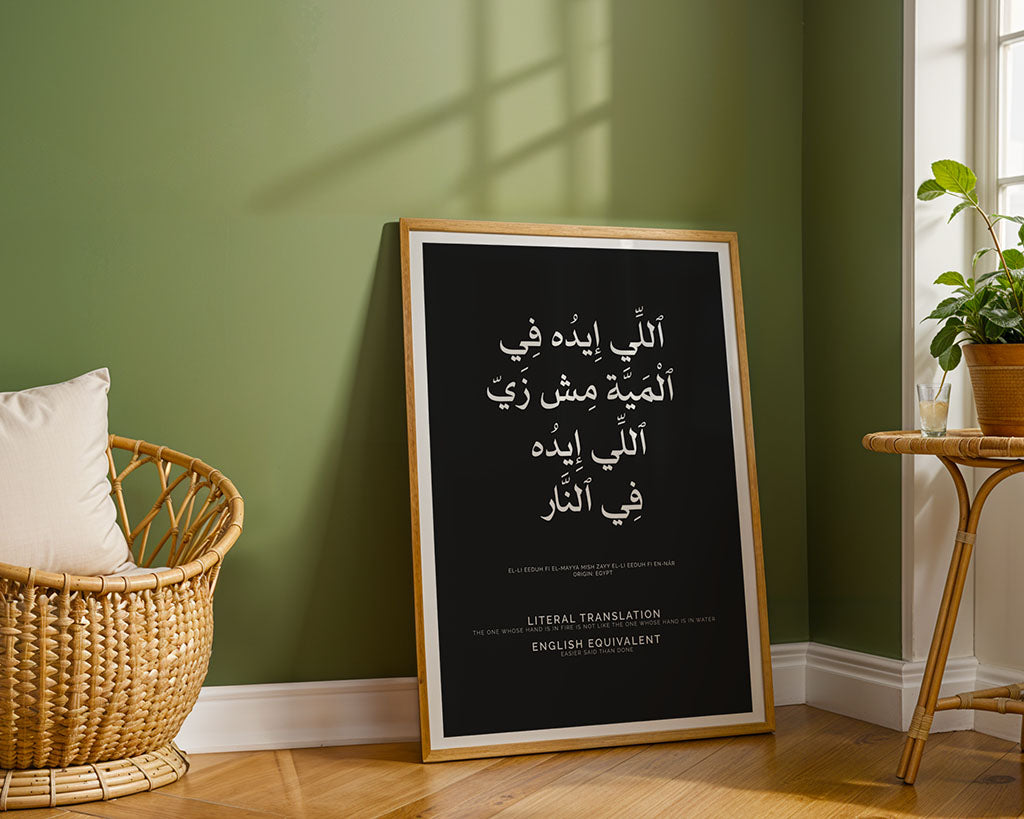 ٱللِّي إِيدُه فِي
ٱلْمَيَّة مِش زَيّ
ٱللِّي إِيدُه
فِي ٱلنَّار
EL-LI EEDUH FI EL-MAYYA MISH ZAYY EL-LI EEDUH FI EN-NÂR
ORIGIN: EGYPT
LITERAL TRANSLATION
THE ONE WHOSE HAND IS IN FIRE IS NOT LIKE THE ONE WHOSE HAND IS IN WATER
ENGLISH EQUIVALENT
EASIER SAID THAN DONE